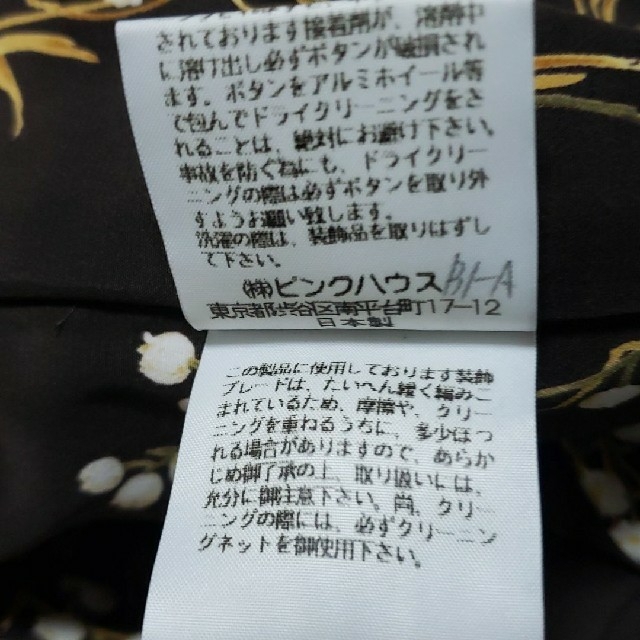 されております接着剤が、溶剤中
に溶け出し必ずボタンが破損され
ます。ボタンをアルミホイール等
で包んでドライクリーニングをさ
れることは、絶対にお避け下さい。
事故を防ぐ為にも、ドライクリー
ニングの際は必ずボタンを取り外
すようお願い致します。
洗濯の際は、装飾品を取りはずし
て下さい。
㈱ピンクハウス B1-A
東京都渋谷区南平台町17-12
日本製
この製品に使用しております装飾
ブレードは、たいへん緩く編みこ
まれているため、摩擦や、クリー
ニングを重ねるうちに、多少ほつ
れる場合がありますので、あらか
じめ御了承の上、取り扱いには、
充分に御注意下さい。尚、クリー
ニングの際には、必ずクリーニン
グネットを御使用下さい。